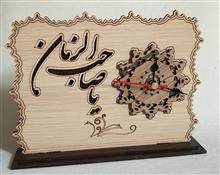 یا صاحب الزمان